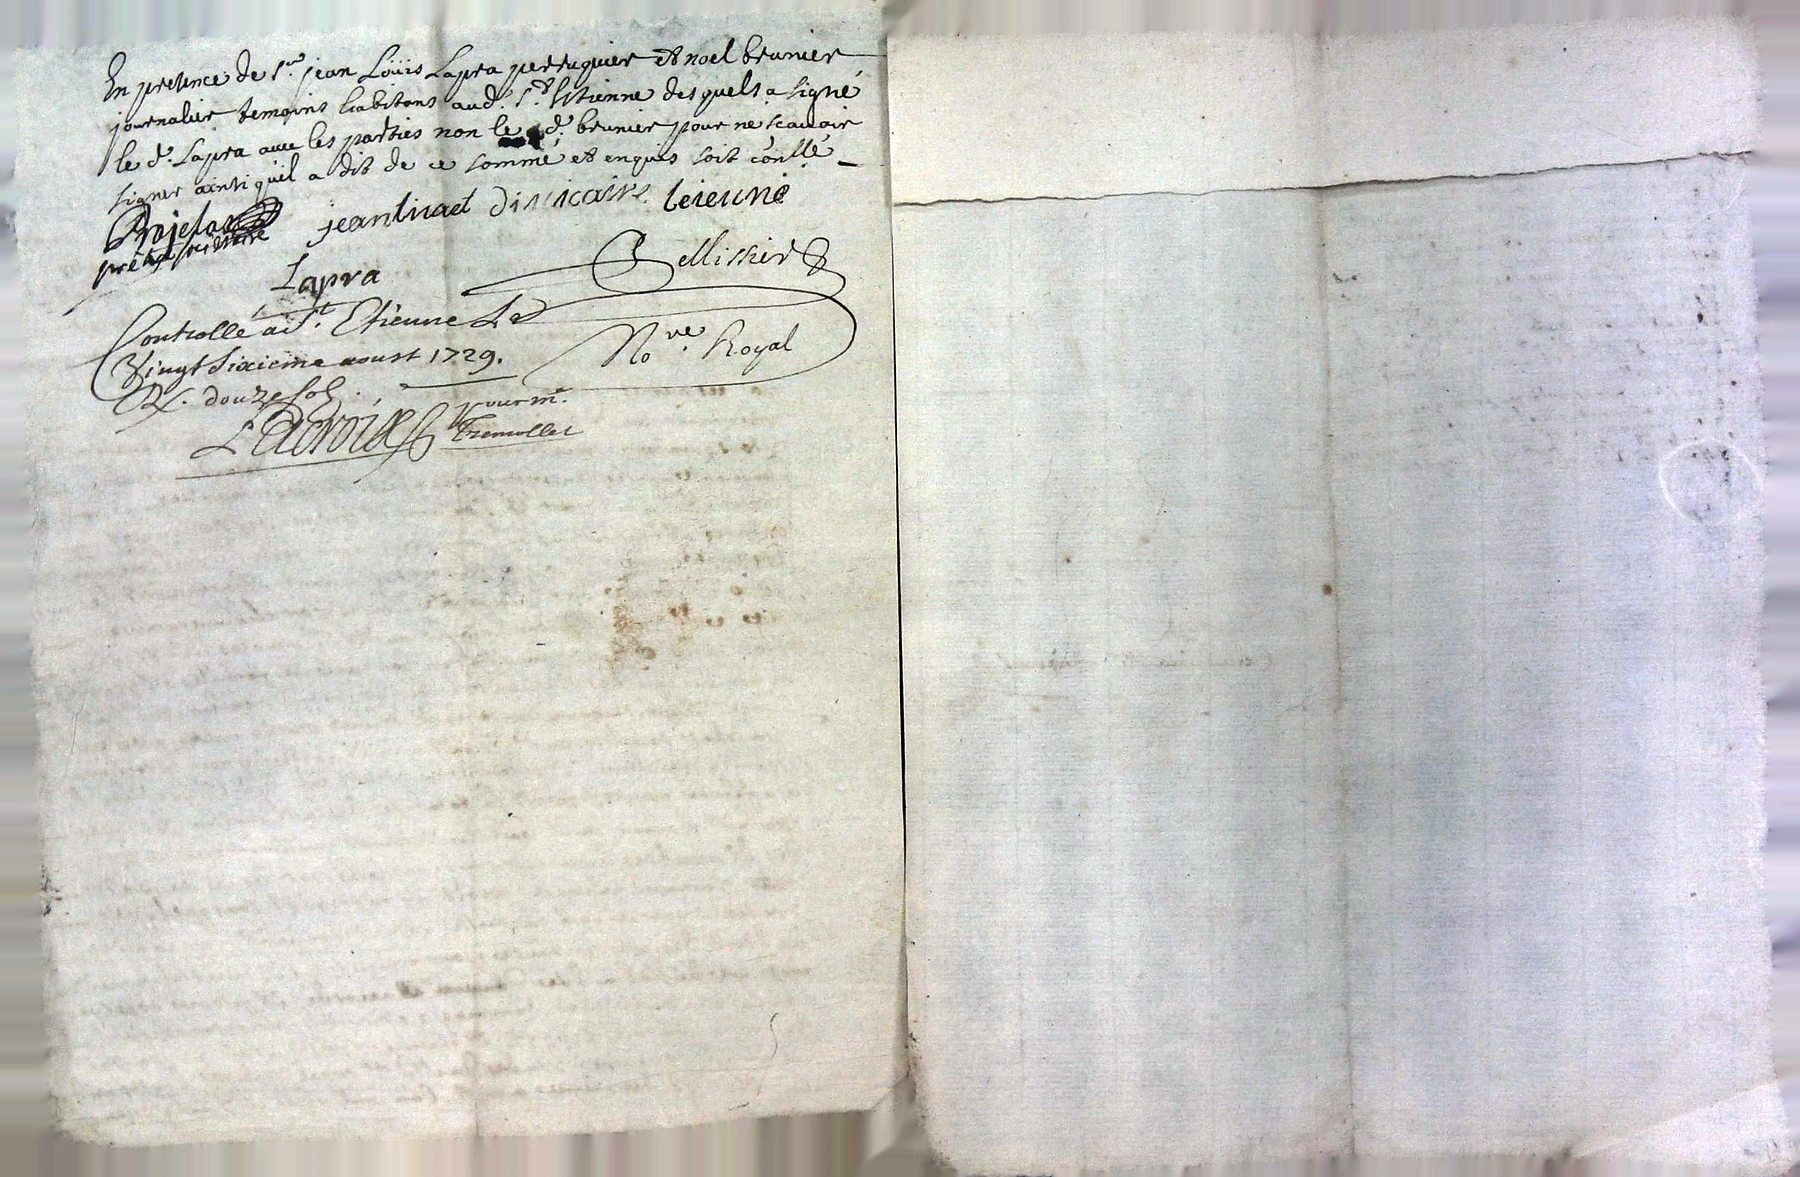 En presence de Sr. jean Loüis Lapra perruquier et noel brunier
journalier temoins habitans aud. St. Etienne desquels a signé
le d. Lapra avec les parties non le d. brunier pour ne scavoir
signer ainsi quil a dit de ce sommé et enquis soit conllé
Prajelas jean
prêtre le jeune
Lapra Pellissier
Controlle a St. Etienne Le
Vingt Sixieme aoust 1729. Nore. Royal
R. douze sols
Lacroix pour m.
Tremollet